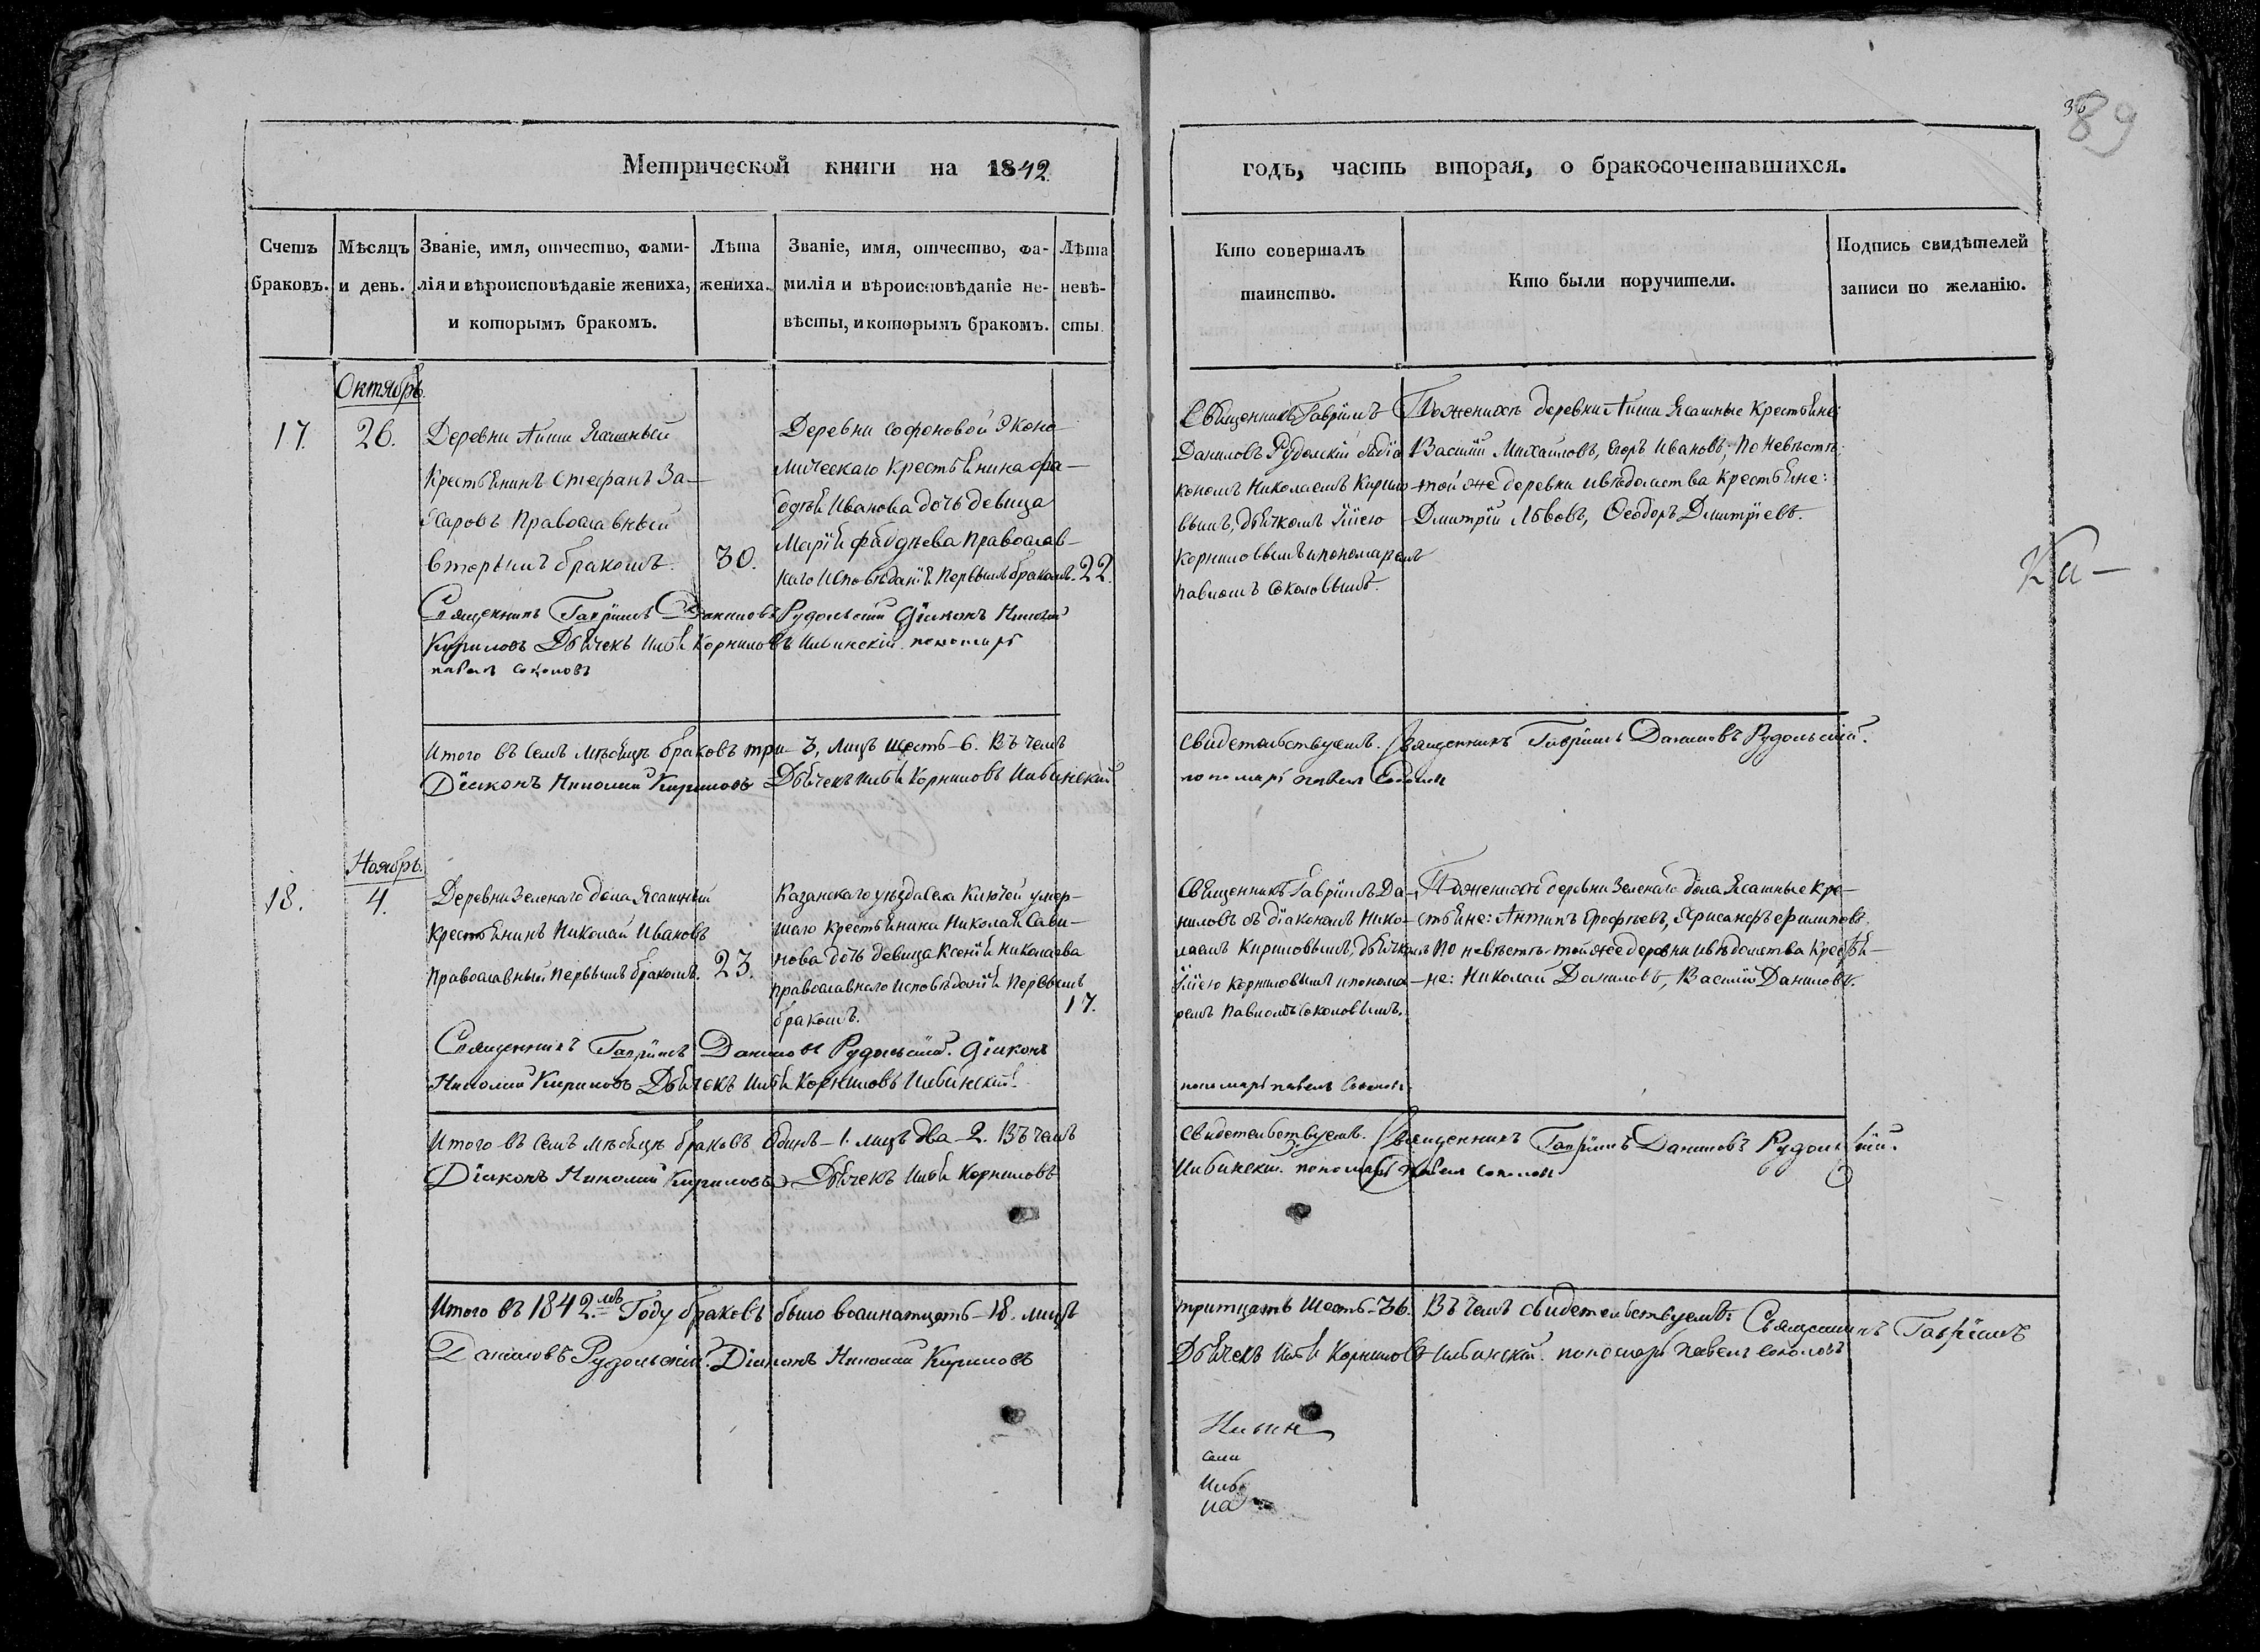 36
89
Метрической книги на 1842.
годъ, часть вторая, о бракосочетавшихся.
Счетъ браковъ.
Мѣсяцъ и день.
Званіе, имя, отчество, фами-
лія и вѣроисповѣданіе жениха,
и которымъ бракомъ.
Лѣта жениха.
Званіе, имя, отчество, фа-
милія и вѣроисповѣданіе не-
вѣсты, и которымъ бракомъ.
Лѣта невѣ-
сты.
Кто совершалъ
таинство.
Кто были поручители.
Подпись свидѣтелей
записи по желанію.
Октябрь.
17.
26.
Деревни Айши Ясашный
Крестьянинъ Стефанъ За-
харовъ Православный
вторымъ бракомъ.
30.
Деревни Софоновой Эконо-
мическаго Крестьянина
Иванова дочь девица
Марія Православ-
наго Исповѣданія первымъ бракомъ.
22.
Священникъ Гавріилъ Даниловъ Рудольскій Діаконъ Николай
Кириловъ Дьячекъ Илья Корниловъ Ивинскій пономарь
павелъ соколовъ
Священникъ Гавріилъ
Даниловъ Рудольскій съ діа-
кономъ Николаемъ Кирило-
вымъ, дьячкомъ Иліею
Корниловымъ и пономаремъ
павломъ соколовымъ.
По женихѣ деревни Айши Ясашные Крестьяне:
Василій Михайловъ, Егоръ Ивановъ; По невѣстѣ:
той же деревни и вѣдомства крестьяне:
Дмитрій Львовъ, Ѳеодоръ Дмитріевъ.
Ка-
Итого въ семъ мѣсяцѣ браковъ три-3, лицъ шесть-6. Въ чемъ
свидетельствуемъ. Священникъ Гавріилъ Даниловъ Рудольскій.
Діаконъ Николай Кириловъ Дьячекъ Илья Корниловъ Ивинскій
пономарь павелъ Соколовъ
Ноябрь.
18.
4.
Деревни Зеленаго дола Ясашный
Крестьянинъ Николай Ивановъ
Православный первымъ бракомъ.
23.
Казанскаго уѣзда Села Ключей умер-
шаго крестьянина Николая Сави-
нова дочь девица Ксенія Николаева
православнаго исповѣданія первымъ
бракомъ.
17.
Священникъ Гавріилъ Даниловъ Рудольскій. Діаконъ
Николай Кириловъ Дьячекъ Илья Корниловъ Ивинскій
Священникъ Гавріилъ Да-
ниловъ съ діакономъ Нико-
лаемъ Кириловымъ, дьячкомъ
Иліею Корниловымъ и понома-
ремъ Павломъ Соколовымъ.
пономарь павелъ Соколовъ
По женихѣ деревни Зеленаго дола Ясашные Кре-
стьяне: Антипъ Ерофѣевъ, Хрисанфъ Филиповъ.
По невѣстѣ той же деревни и вѣдомства Крестья-
не: Николай Даниловъ, Василій Даниловъ.
Итого въ семъ мѣсяцѣ браковъ Одинъ-1. лицъ два-2. Въ чемъ
свидетельствуемъ. Священникъ Гавріилъ Даниловъ Рудольскій.
Діаконъ Николай Кириловъ Дьячекъ Илья Корниловъ
Ивинскій. пономарь Павелъ Соколовъ
Итого въ 1842.мъ Году браковъ было восинатцеть-18. лицъ
тритцать шесть-36. Въ чемъ свидетельствуемъ: Священникъ Гавріилъ
Даниловъ Рудольскій. Діаконъ Николай Кириловъ
Дьячекъ Илья Корниловъ Ивинскій. пономарь Павелъ Соколовъ